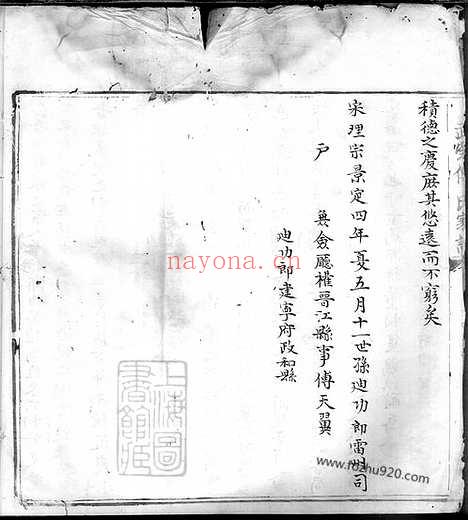 積德之慶庶其悠遠而不窮矣
宋理宗景定四年夏五月十一世孫迪功郎雷州司
戶 兼僉廳權晉江縣事傅天翼
迪功郎建寧府政和縣
上海圖書館藏
nayona.cn
www.fozhu920.com